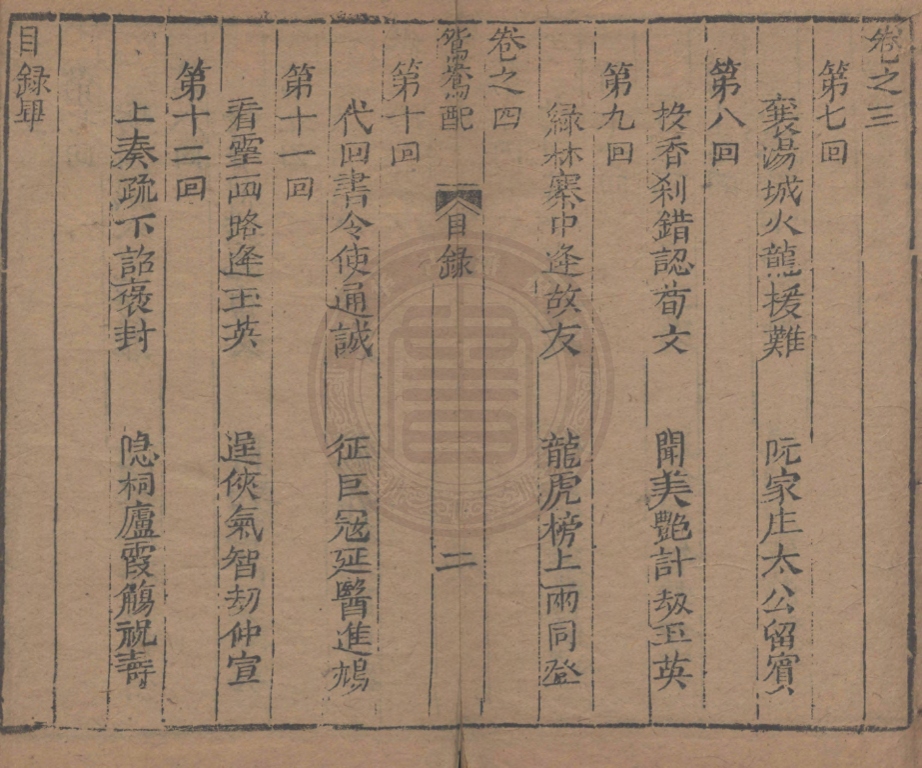 卷之三
第七回
襄湯城火龍援難 阮家庄太公留賓
第八回
投香刹錯認荀文 聞美艷計劫玉英
第九回
綠林寨中逢故友 龍虎榜上兩同登
卷之四
鴛鴦配 目錄 二
第十回
代回書令使通誠 征巨冦延醫進鴆
第十一回
看靈一四路逢玉英 逞俠氣智劫仲宣
第十二回
上奏疏下詔褒封 隐桐廬霞觴祝壽
目錄畢